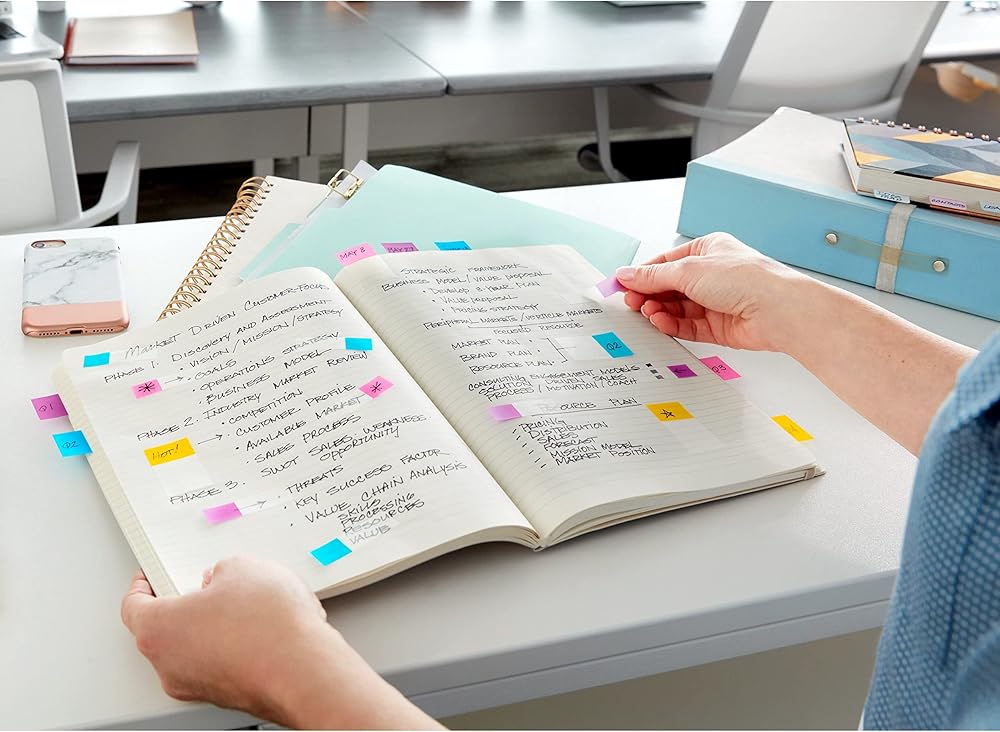 MAY 8
MAY 27
Q1
Q2
MARKET DRIVEN CUSTOMER-FOCUS
PHASE 1: DISCOVERY AND ASSESSMENT
• VISION / MISSION / STRATEGY
• GOALS
• OPERATIONS STRATEGY
• BUSINESS MODEL
PHASE 2: INDUSTRY MARKET REVIEW
• COMPETITION
• CUSTOMER PROFILE
HOT!
• AVAILABLE MARKET
• SALES PROCESS
• SWOT SALES WEAKNESS
OPPORTUNITY
PHASE 3: THREATS
• KEY SUCCESS FACTOR
• VALUE CHAIN ANALYSIS
SKILLS
PROCESSING
RESOURCES
VALUE
STRATEGIC FRAMEWORK
BUSINESS MODEL / VALUE PROPOSAL
• DEVELOP 3 YEAR PLAN
• VALUE PROPOSAL
• PRICING STRATEGY
PERIPHERAL MARKETS / VERTICLE MARKETS
FOCUSED RESOURCE
MARKET PLAN
BRAND PLAN
RESOURCE PLAN
Q2
CONSULTING ENGAGEMENT MODELS
SOLUTION DRIVEN SALES
PROCESS / MOTIVATION / COACH
Q3
RESOURCE PLAN
PRICING
DISTRIBUTION
SALES
FORECAST
MISSION MODEL
MARKET POSITION
CONTACTS